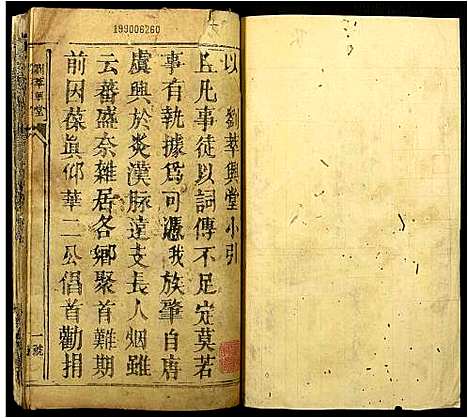 199006260
以
劉萃興堂小引
且凡事徒以詞傳不足定莫若
事有執據爲可憑我族肇自唐
虞興於炎漢脉遠支長人烟雖
云蕃盛奈雜居各鄉聚首難期
前因葆眞仰華二公倡首勸捐
劉萃興堂
一號